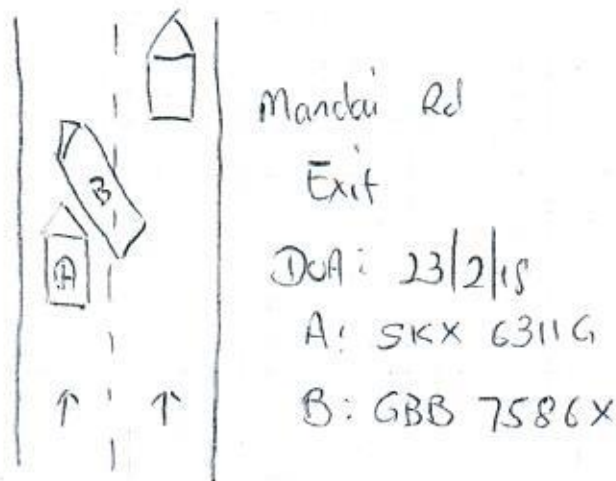 Mandai Rd
Exit
DOA: 23/2/18
A: SKX 6311G
B: GBB 7586X
B
A